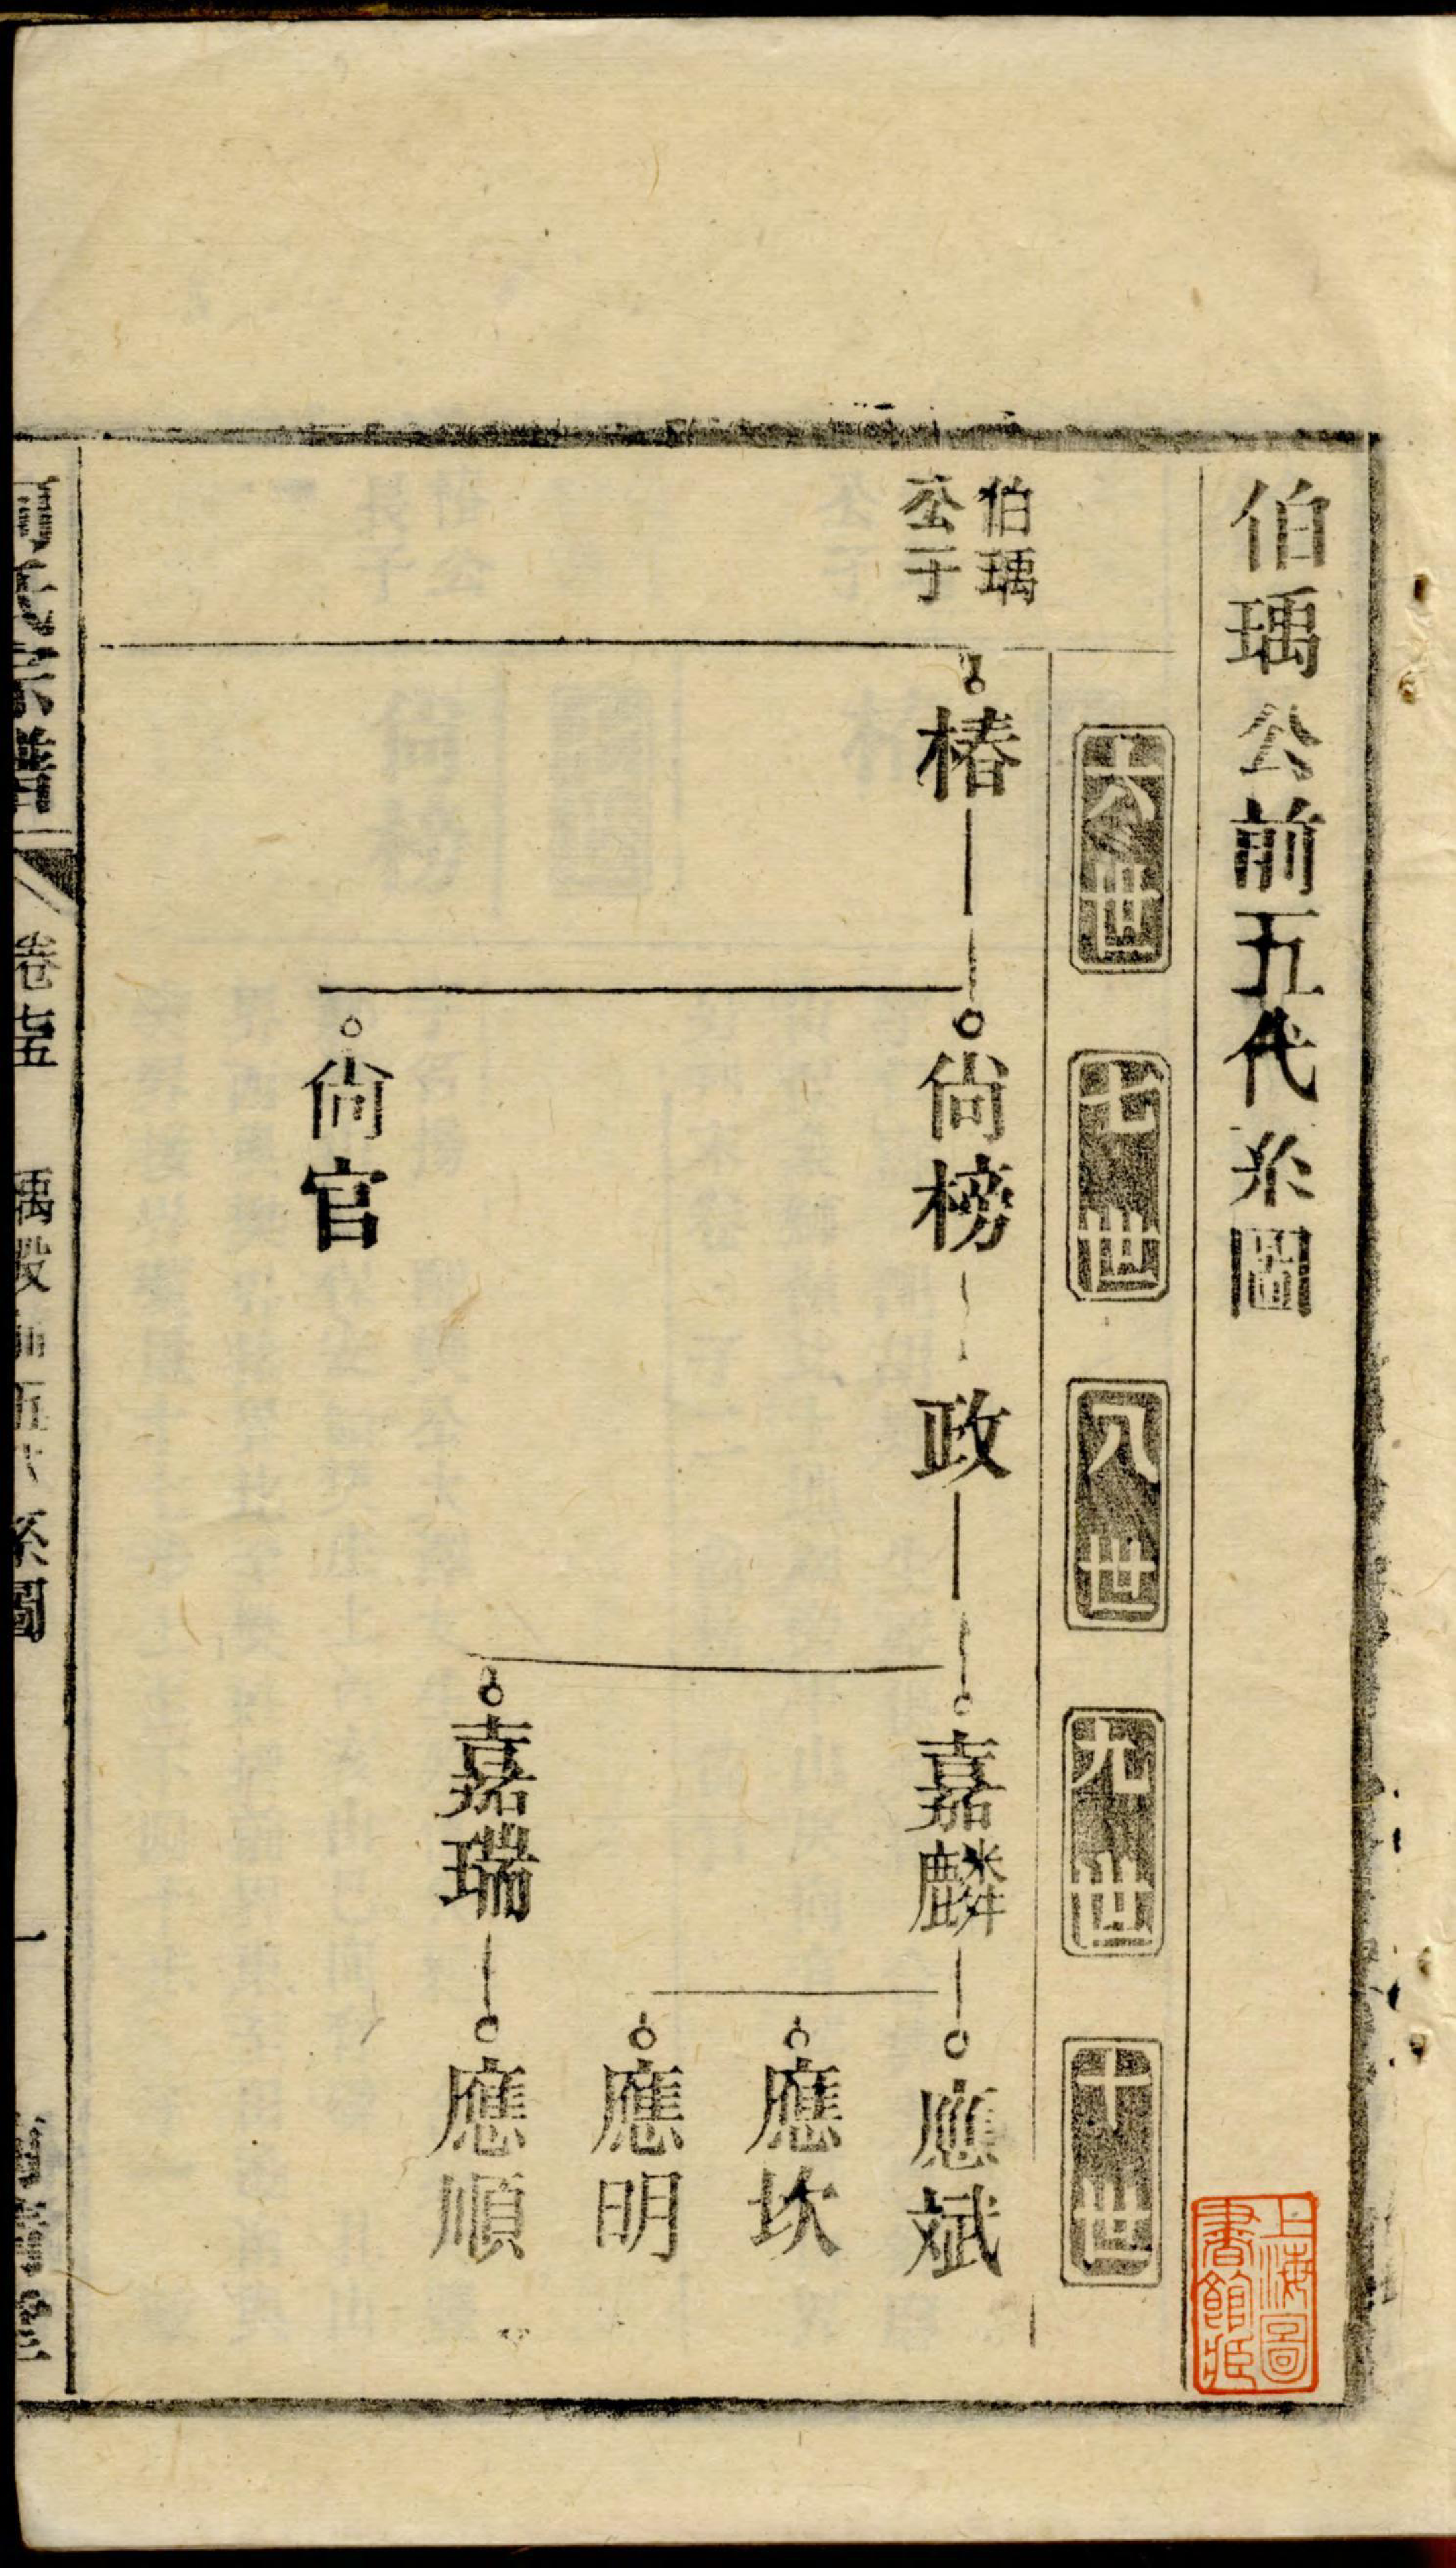 伯瑀公前五代系圖
六世
七世
八世
九世
十世
伯瑀
公子
椿
尙榜
政
嘉麟
應斌
應坎
應明
嘉瑞
應順
尙官
宗譜
卷七五
系圖
一
上海圖
書館藏